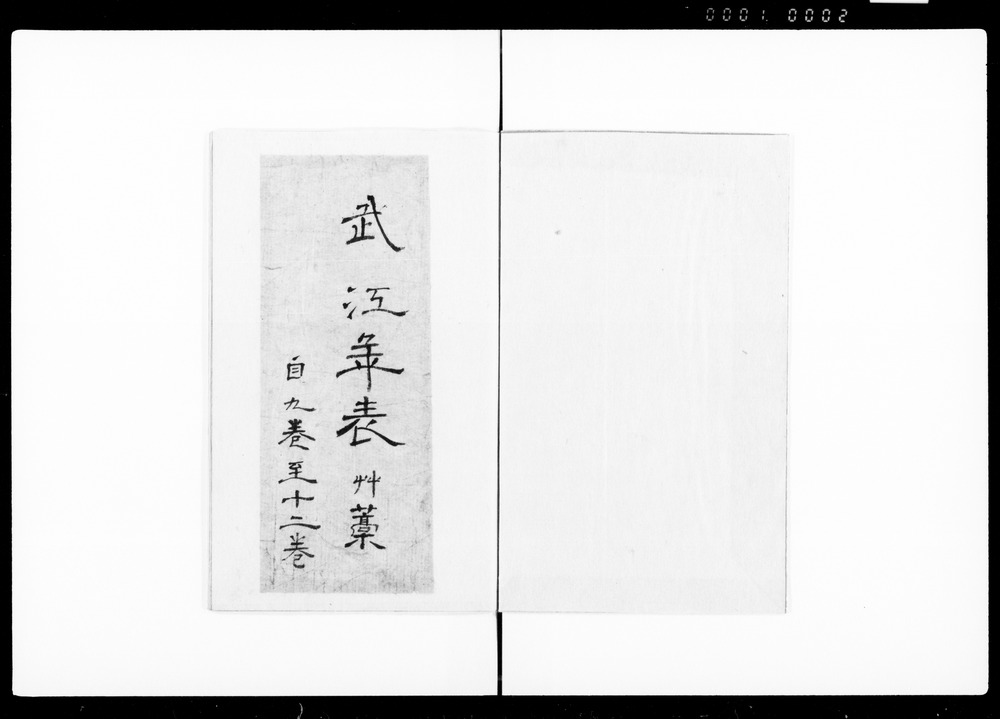 0001. 0002
武江年表艸藁
自九巻至十二巻